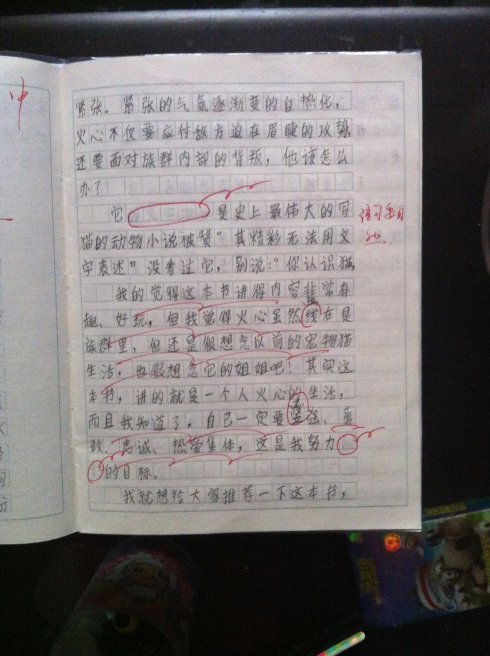 紧张。紧张的气氛逐渐变的白热化，
火心不仅要应付敌方迫在眉睫的攻势
还要面对族群内部的背叛，他该怎么
办？
它 是史上最伟大的宇
猫的动物小说被赞“其精彩无法用文
字表述”没看过它，别说：“你认识猫。
我的觉得这本书讲得内容非常有
趣、好玩，但我觉得火心虽然 在是
族群里，但还是很想念以前的宠物猫
生活，也很想念它的姐姐吧！其实这
本书，讲的就是一个人火心的生活，
而且我知道了，自己一定要坚强、勇
敢、忠诚、热爱集体，这是我努力
的目标。
我就想给大家推荐一下这本书，
语句